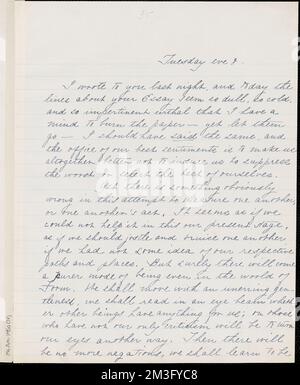 35
Tuesday eve &.
I wrote to you last night, and today the
lines about your Essay seem so dull, so cold,
and so impertinent withal that I have a
mind to burn the paper — yet let them
go — I should have said the same, and
the office of our best sentiments is to make us
altogether better not to induce us to suppress
the worst or select the best of ourselves.
And there is something obviously
wrong in this attempt to measure one another,
or one another's act. It seems as if we
could not help it in this our present stage,
as if we should jostle and bruise one another
if we had not some idea of our respective
paths and places. But surely there will come
a purer mode of being even in the world of
Form. We shall move with an unerring gen-
tleness, we shall read in an eye beam wheth-
er other beings have anything for us; on those
who have not our only criticism will be to turn
our eyes another way. Then there will
be no more negations, we shall learn to be
alamy
www.alamy.com
2M3FYC8